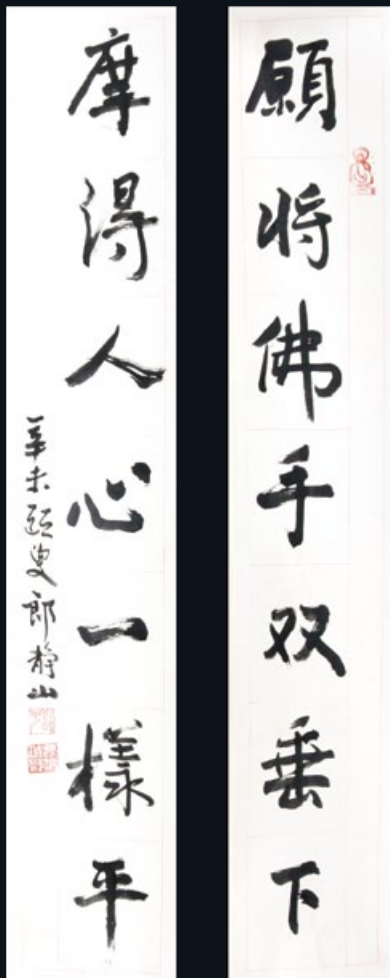 願将佛手双垂下
摩得人心一樣平
辛未頤叟郎靜山